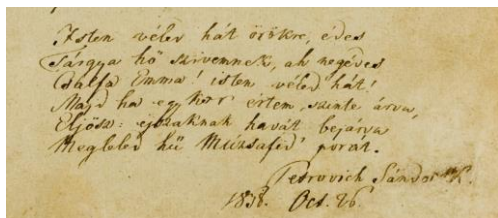 Isten véled hát örökre, édes
Tárgya hő szivemnek, ah negédes
Dalfa Emma! isten véled hát!
Majd ha egykor értem, szinte árva,
Eljösz: éjszaknak havát bejárva
Megleled hű Múzsafid' porát.
Petrovich Sándor mk.
1838. Oct. 26.